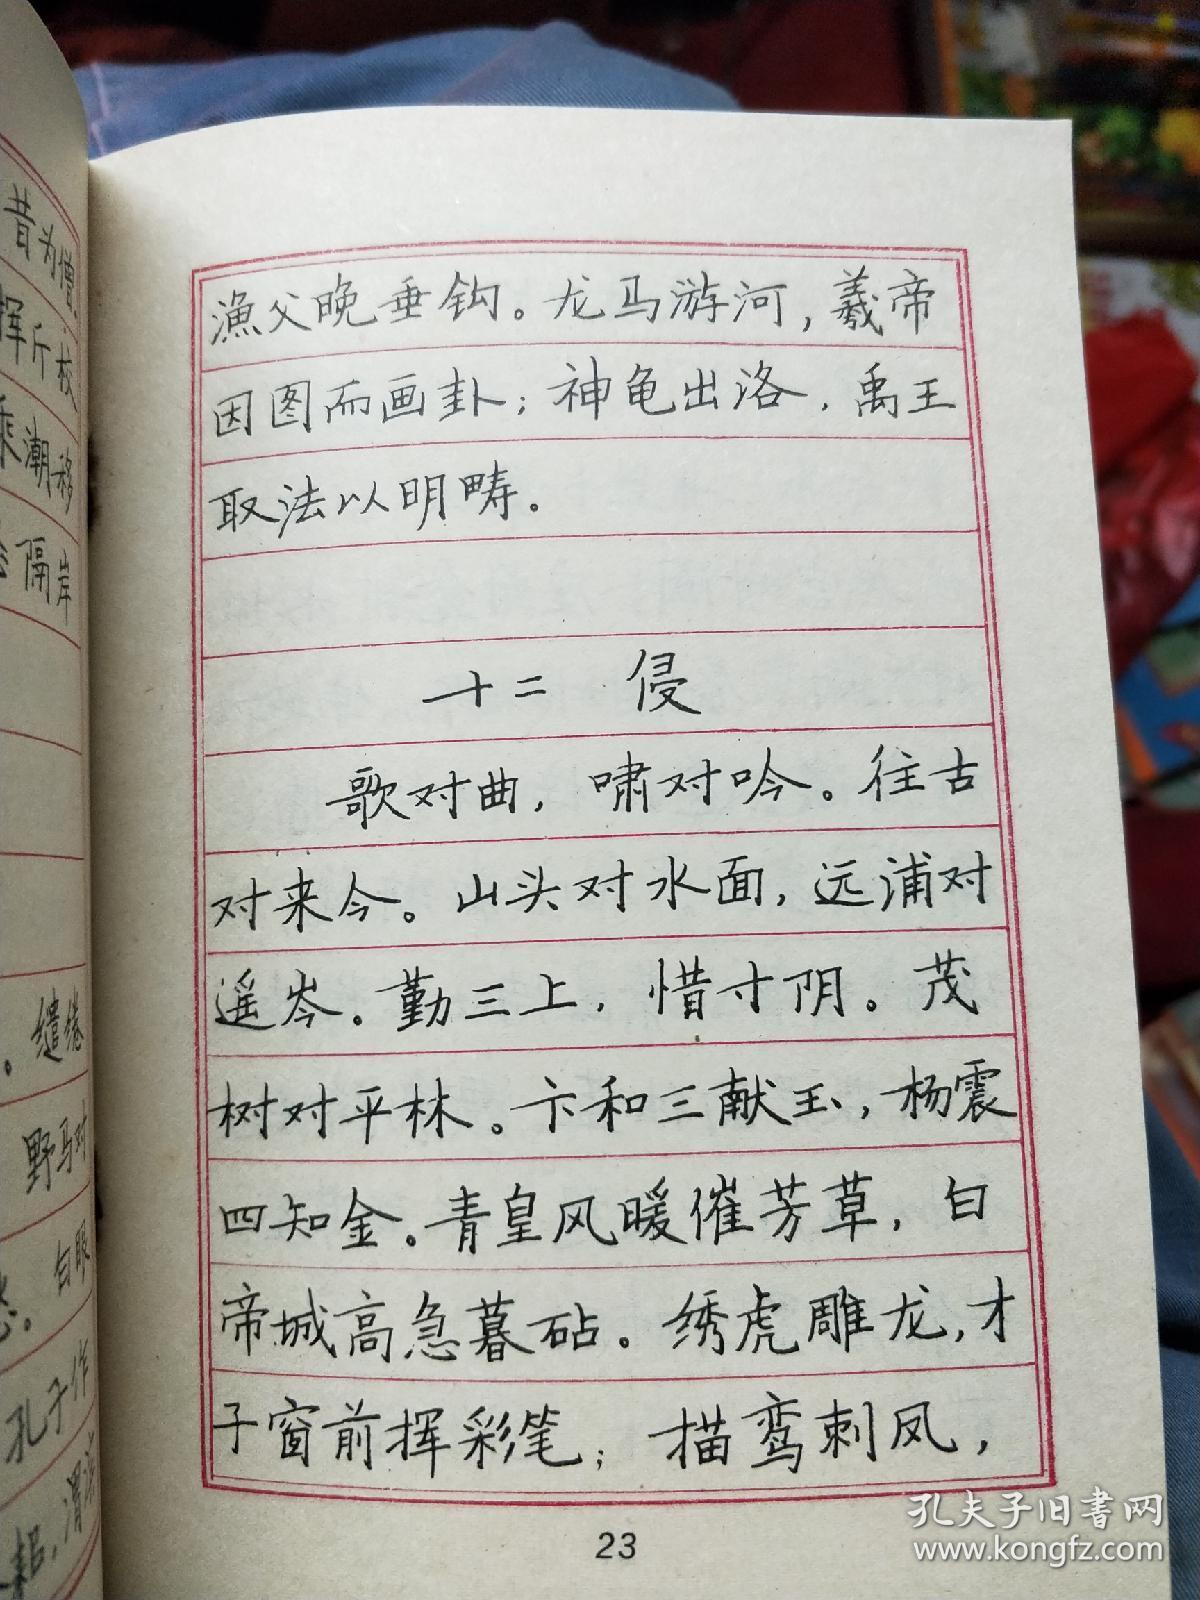 昔为僧
挥斤校
乘潮移
隔岸
。缱绻
野马对
白眼
孔子作
渔父晚垂钩。龙马游河，羲帝
因图而画卦；神龟出洛，禹王
取法以明畴。
十二 侵
歌对曲，啸对吟。往古
对来今。山头对水面，远浦对
遥岑。勤三上，惜寸阴。茂
树对平林。卞和三献玉，杨震
四知金。青皇风暖催芳草，白
帝城高急暮砧。绣虎雕龙，才
子窗前挥彩笔；描鸾刺凤，
23
孔夫子旧书网
www.kongfz.com